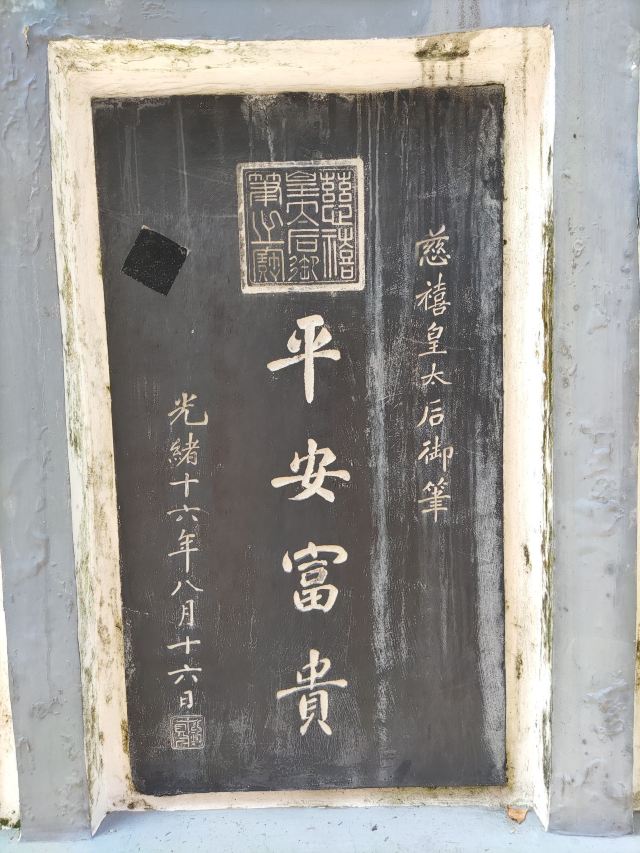 慈禧皇太后御筆
慈禧
皇太后御
筆之寶
平安富貴
光緒十六年八月十六日